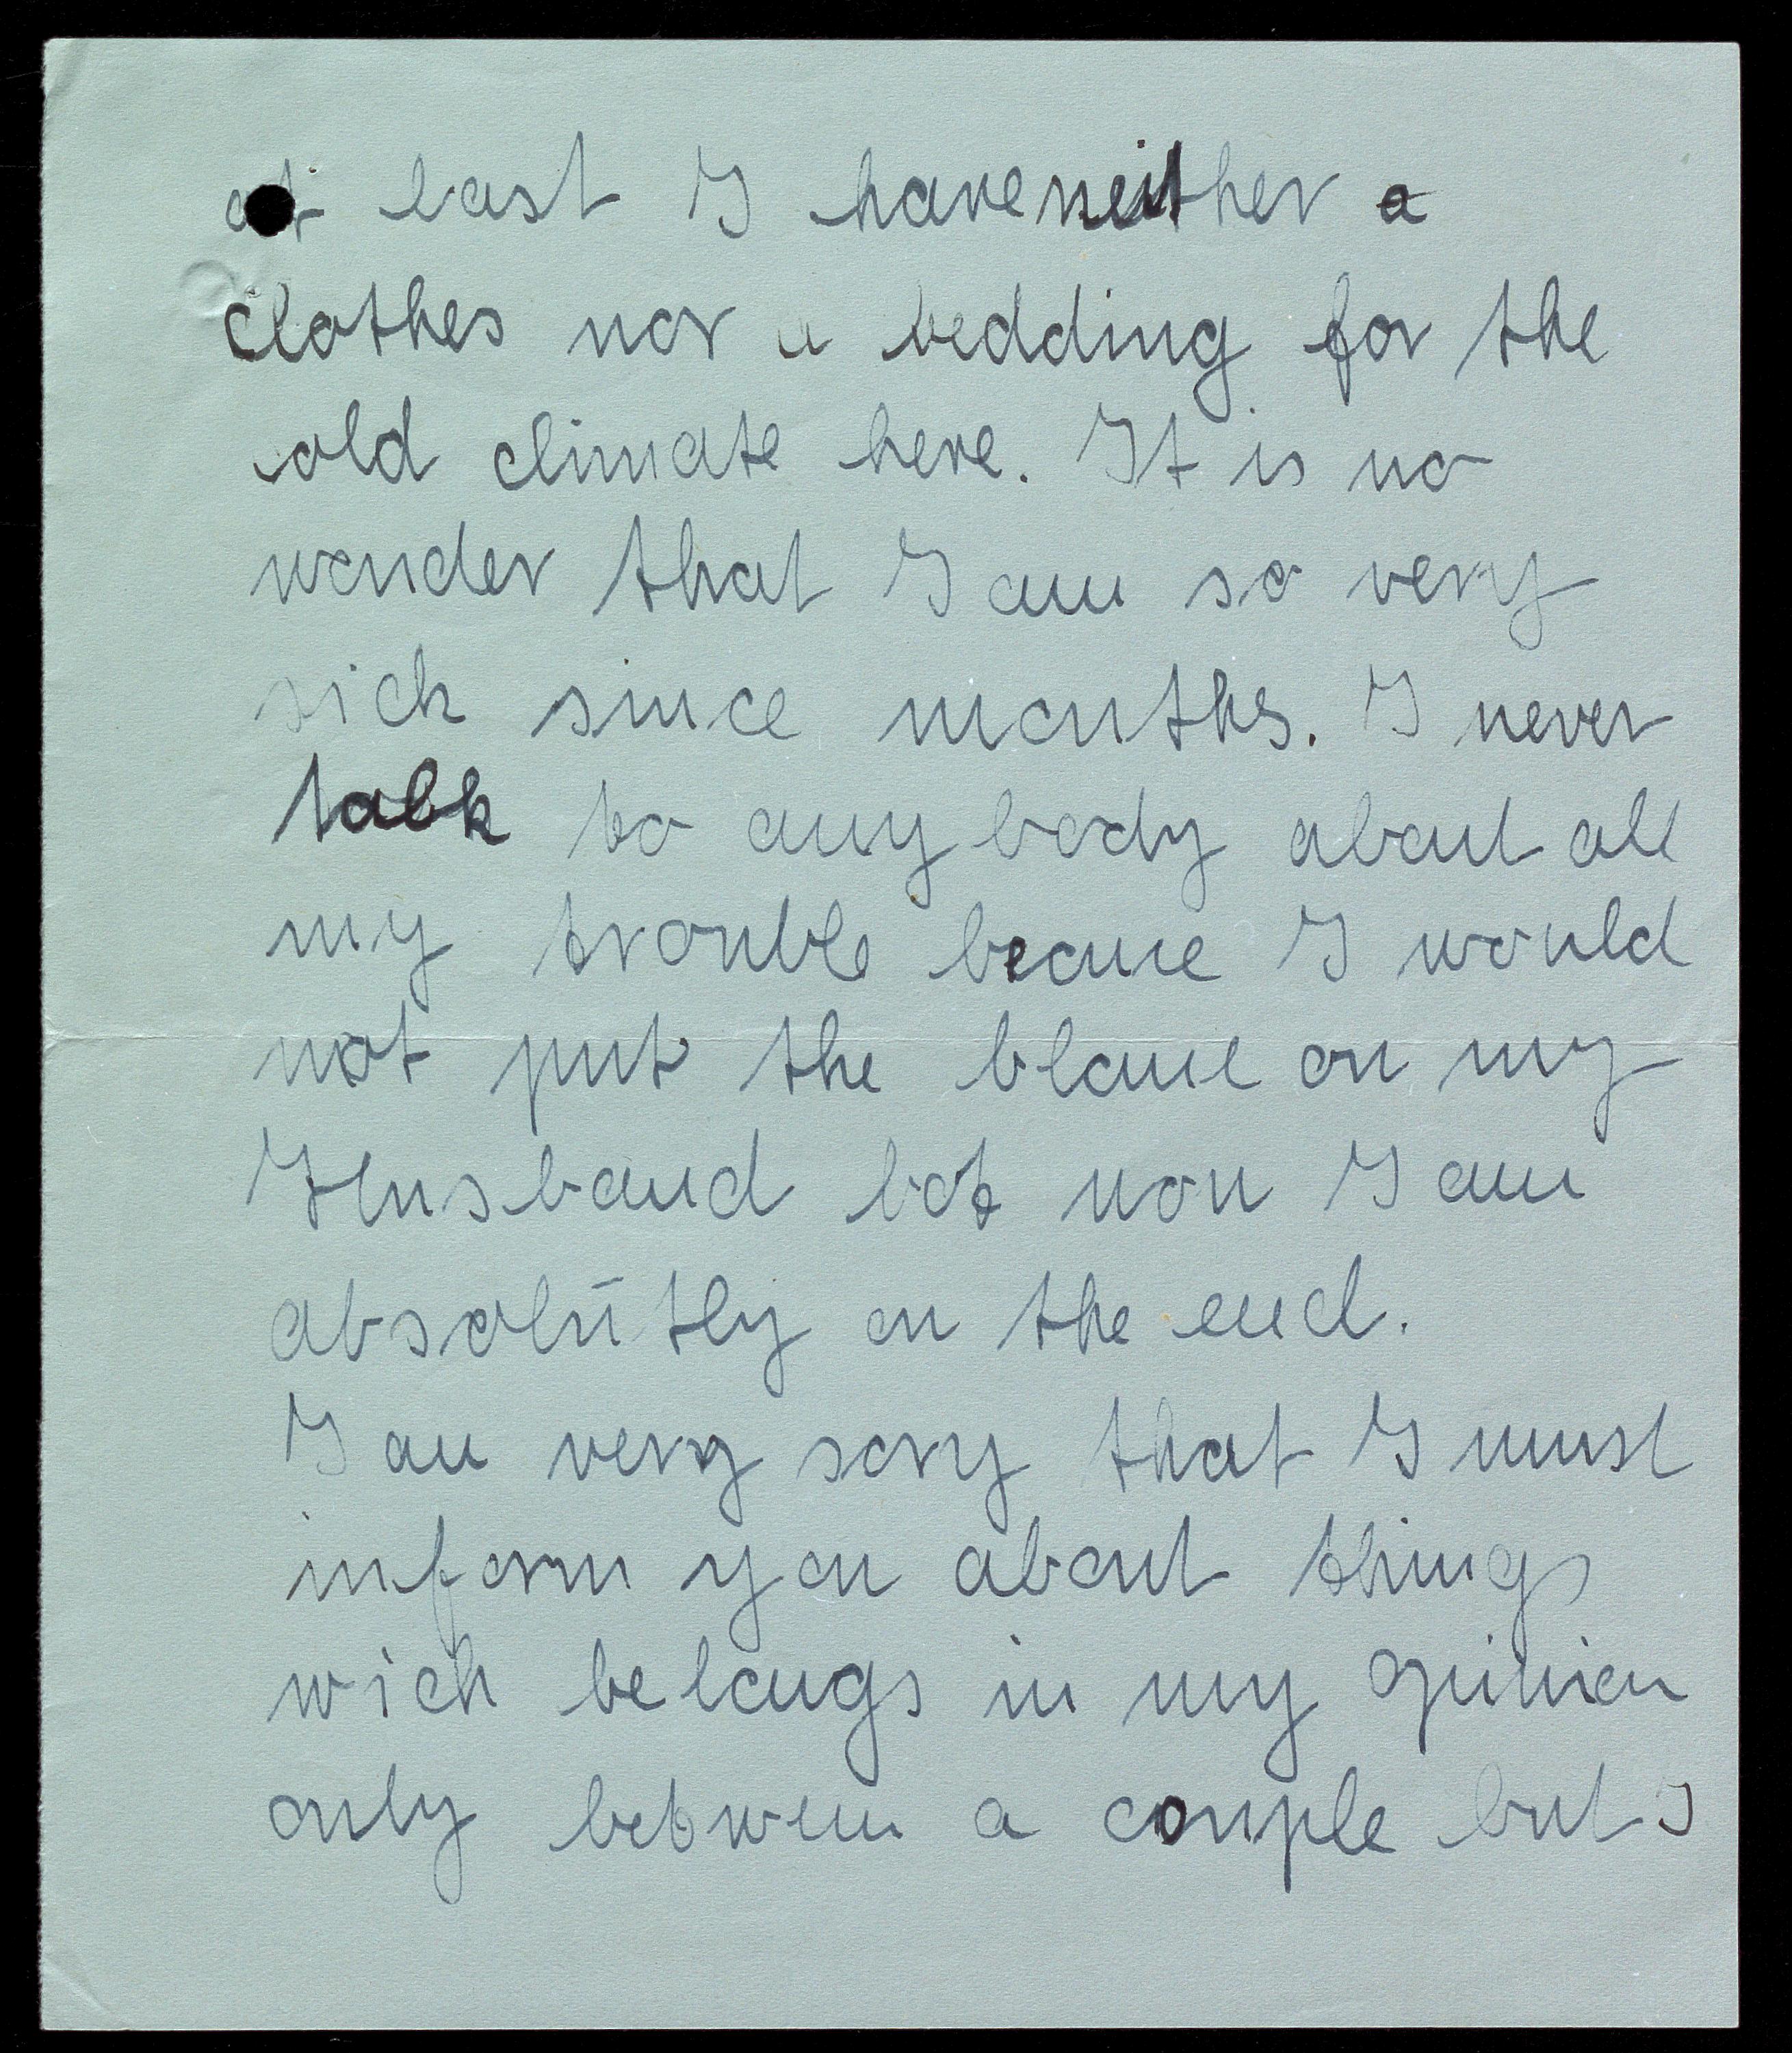 at last I have neither a
clothes nor a bedding for the
cold climate here. It is no
wonder that I am so very
sick since months. I never
talk to any body about all
my trouble becaue I would
not put the blame on my
Husband bot now I am
absolūtly on the end.
I am very sory that I must
inform you about things
wich belongs in my opinion
only between a couple but I